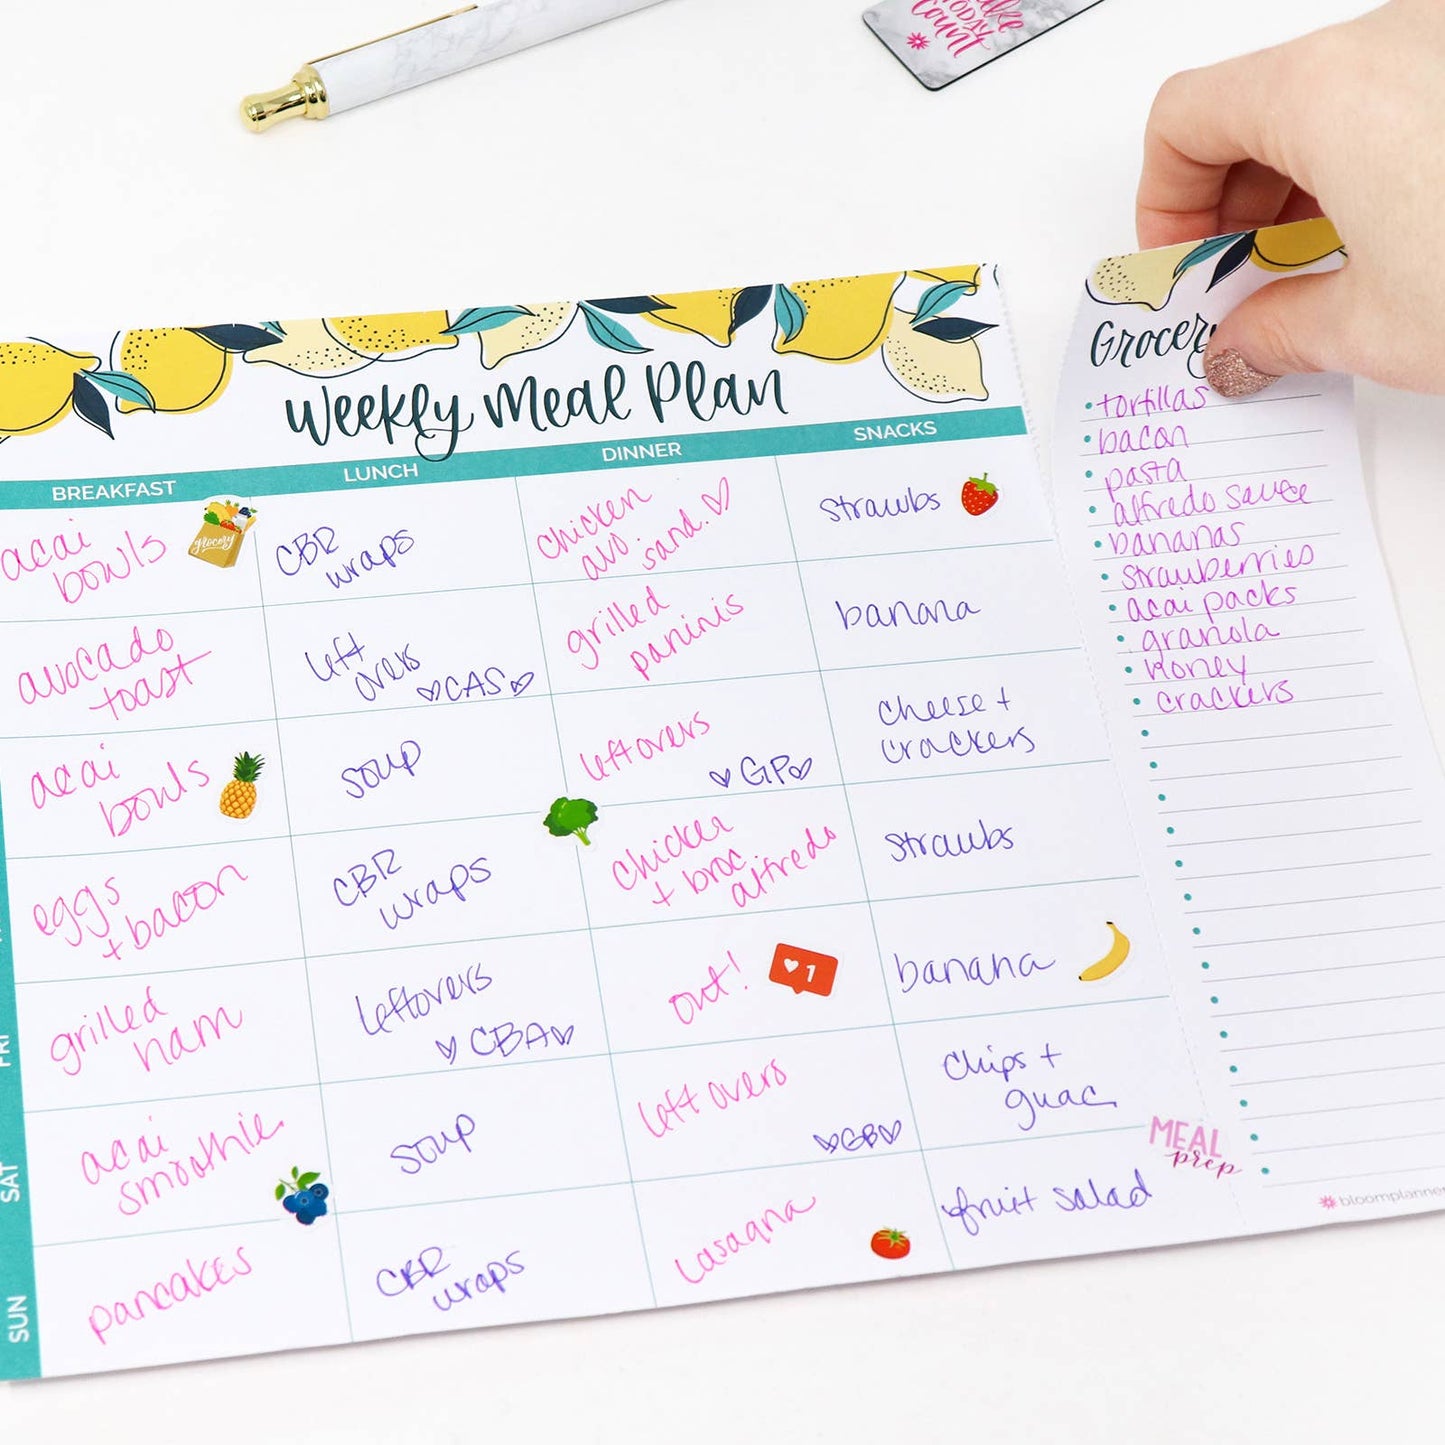 Make
TODAY
Count
Weekly Meal Plan
BREAKFAST
LUNCH
DINNER
SNACKS
acai
bowls
grocery
CBR
wraps
chicken
avo
sand.
strawbs
avocado
toast
left
overs
CAS
grilled
paninis
banana
acai
bowls
soup
leftovers
GP
cheese +
crackers
eggs
+ bacon
CBR
wraps
chicken
+ broc
alfredo
strawbs
FRI
grilled
ham
leftovers
CBA
out!
1
banana
SAT
acai
smoothie
soup
leftovers
GB
chips +
guac
MEAL
prep
SUN
pancakes
CBR
wraps
lasagna
fruit salad
Grocery
tortillas
bacon
pasta
alfredo sauce
bananas
strawberries
acai packs
granola
honey
crackers
bloomplanner